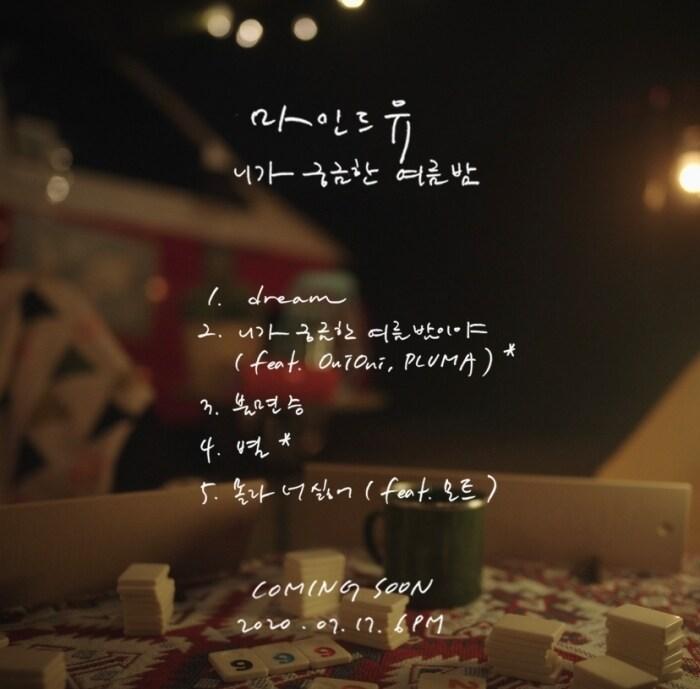 마인드유
니가 궁금한 여름밤
1. dream
2. 니가 궁금한 여름밤이야
(feat. OuiOui, PLUMA) *
3. 불면증
4. 별 *
5. 몰라 너 싫어 (feat. 모트)
COMING SOON
2020.07.17. 6PM
9 9 9